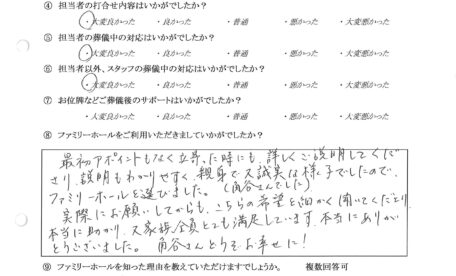 ④ 担当者の打合せ内容はいかがでしたか？
・大変良かった ・良かった ・普通 ・悪かった ・大変悪かった
⑤ 担当者の葬儀中の対応はいかがでしたか？
・大変良かった ・良かった ・普通 ・悪かった ・大変悪かった
⑥ 担当者以外、スタッフの葬儀中の対応はいかがでしたか？
・大変良かった ・良かった ・普通 ・悪かった ・大変悪かった
⑦ お位牌などご葬儀後のサポートはいかがでしたか？
・大変良かった ・良かった ・普通 ・悪かった ・大変悪かった
⑧ ファミリーホールをご利用いただきましていかがでしたか？
最初アポイントもなく立寄った時にも、詳しくご説明してくだ
さり、説明もわかりやすく、親身で又誠実な様子でしたので、
ファミリーホールを選びました。（角谷さんでした）
実際にお願いしてからも、こちらの希望を細かく聞いてくださり
本当に助かり、又家族全員とても満足しています。本当にありが
とうございました。 角谷さんどうぞお幸せに！
⑨ ファミリーホールを知った理由を教えていただけますでしょうか。 複数回答可